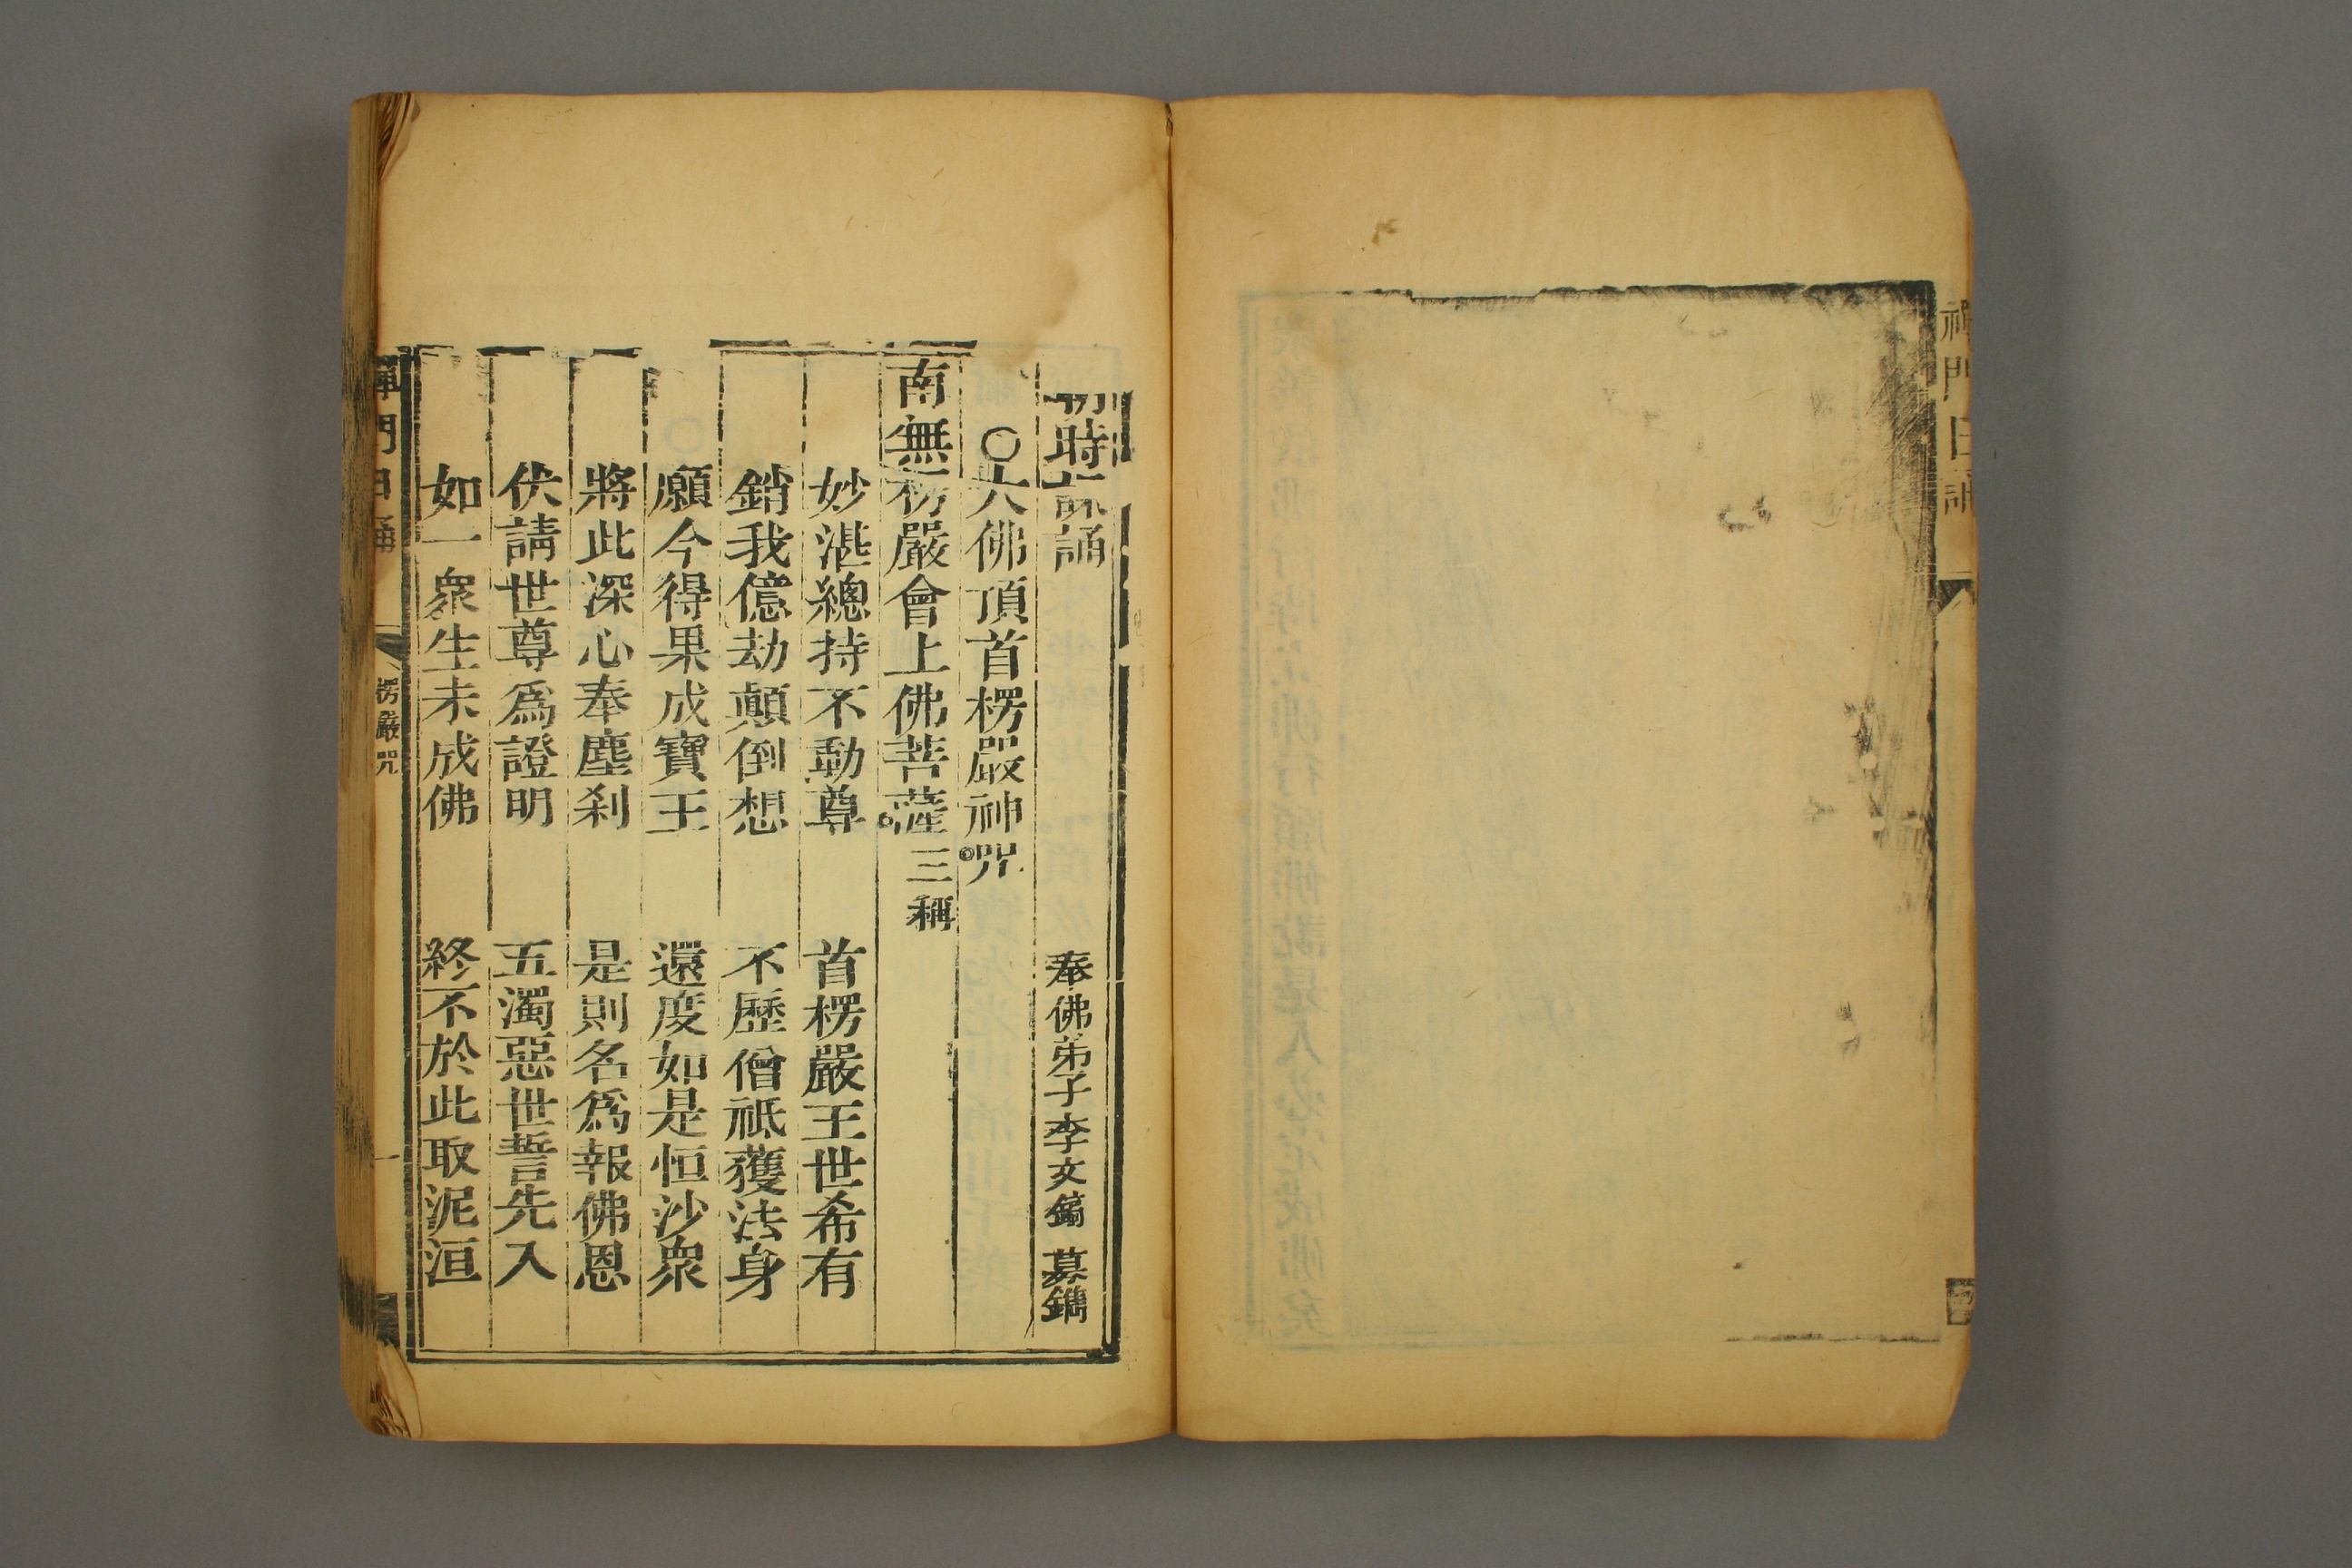 禪門日誦
時課誦 奉佛弟子李文鏑 募鐫
○大佛頂首楞嚴神咒
南無楞嚴會上佛菩薩 三稱
妙湛總持不動尊 首楞嚴王世希有
銷我億劫顛倒想 不歷僧祇獲法身
願今得果成寶王 還度如是恒沙衆
將此深心奉塵刹 是則名爲報佛恩
伏請世尊爲證明 五濁惡世誓先入
如一衆生未成佛 終不於此取泥洹
禪門日誦 楞嚴咒 一